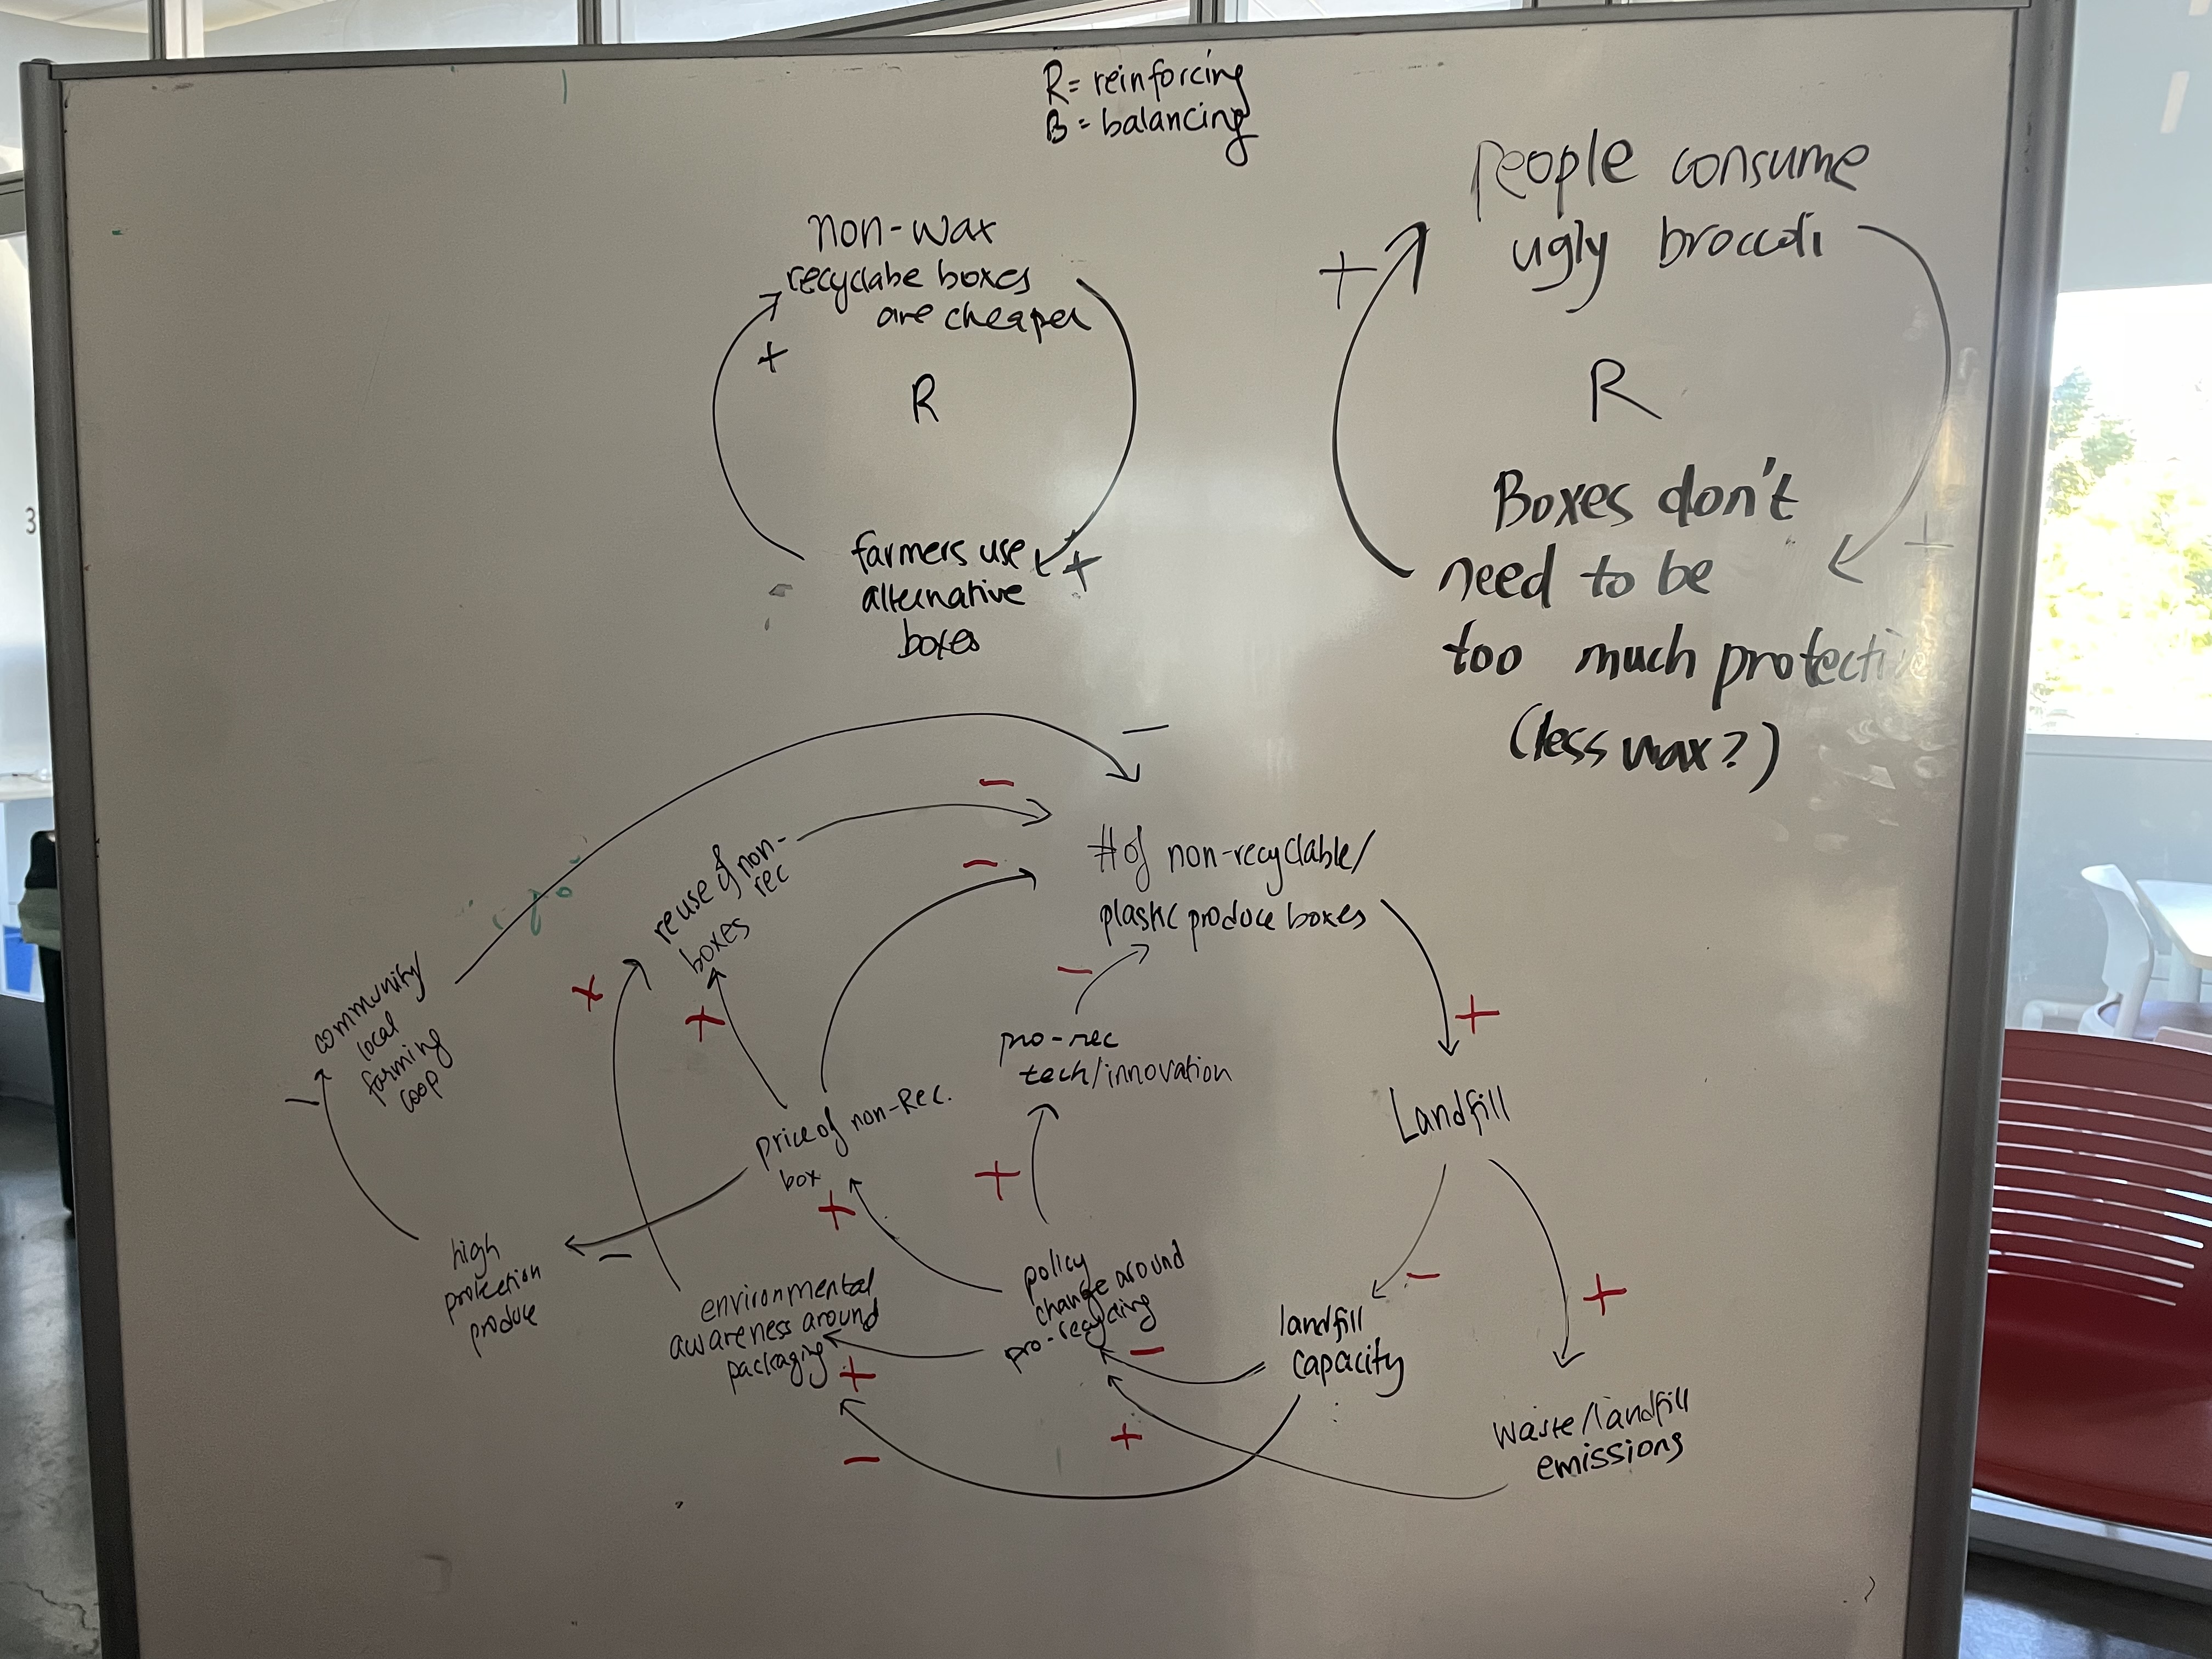 R= reinforcing
B = balancing
non-wax
recyclabe boxes
are cheaper
+
R
farmers use
+
alternative
boxes
people consume
ugly broccoli
+
R
Boxes don't
need to be
+
too much protecti
(less wax?)
−
−
# of non-recyclable/
plastic produce boxes
−
reuse of non-
rec
boxes
+
+
−
pro-rec
tech/innovation
+
Landfill
community/
local
farming
coop
−
price of non-Rec.
box
+
+
high
protection
produce
−
environmental
awareness around
packaging
+
−
policy
change around
pro-recycling
−
+
landfill
capacity
−
+
waste/landfill
emissions
3